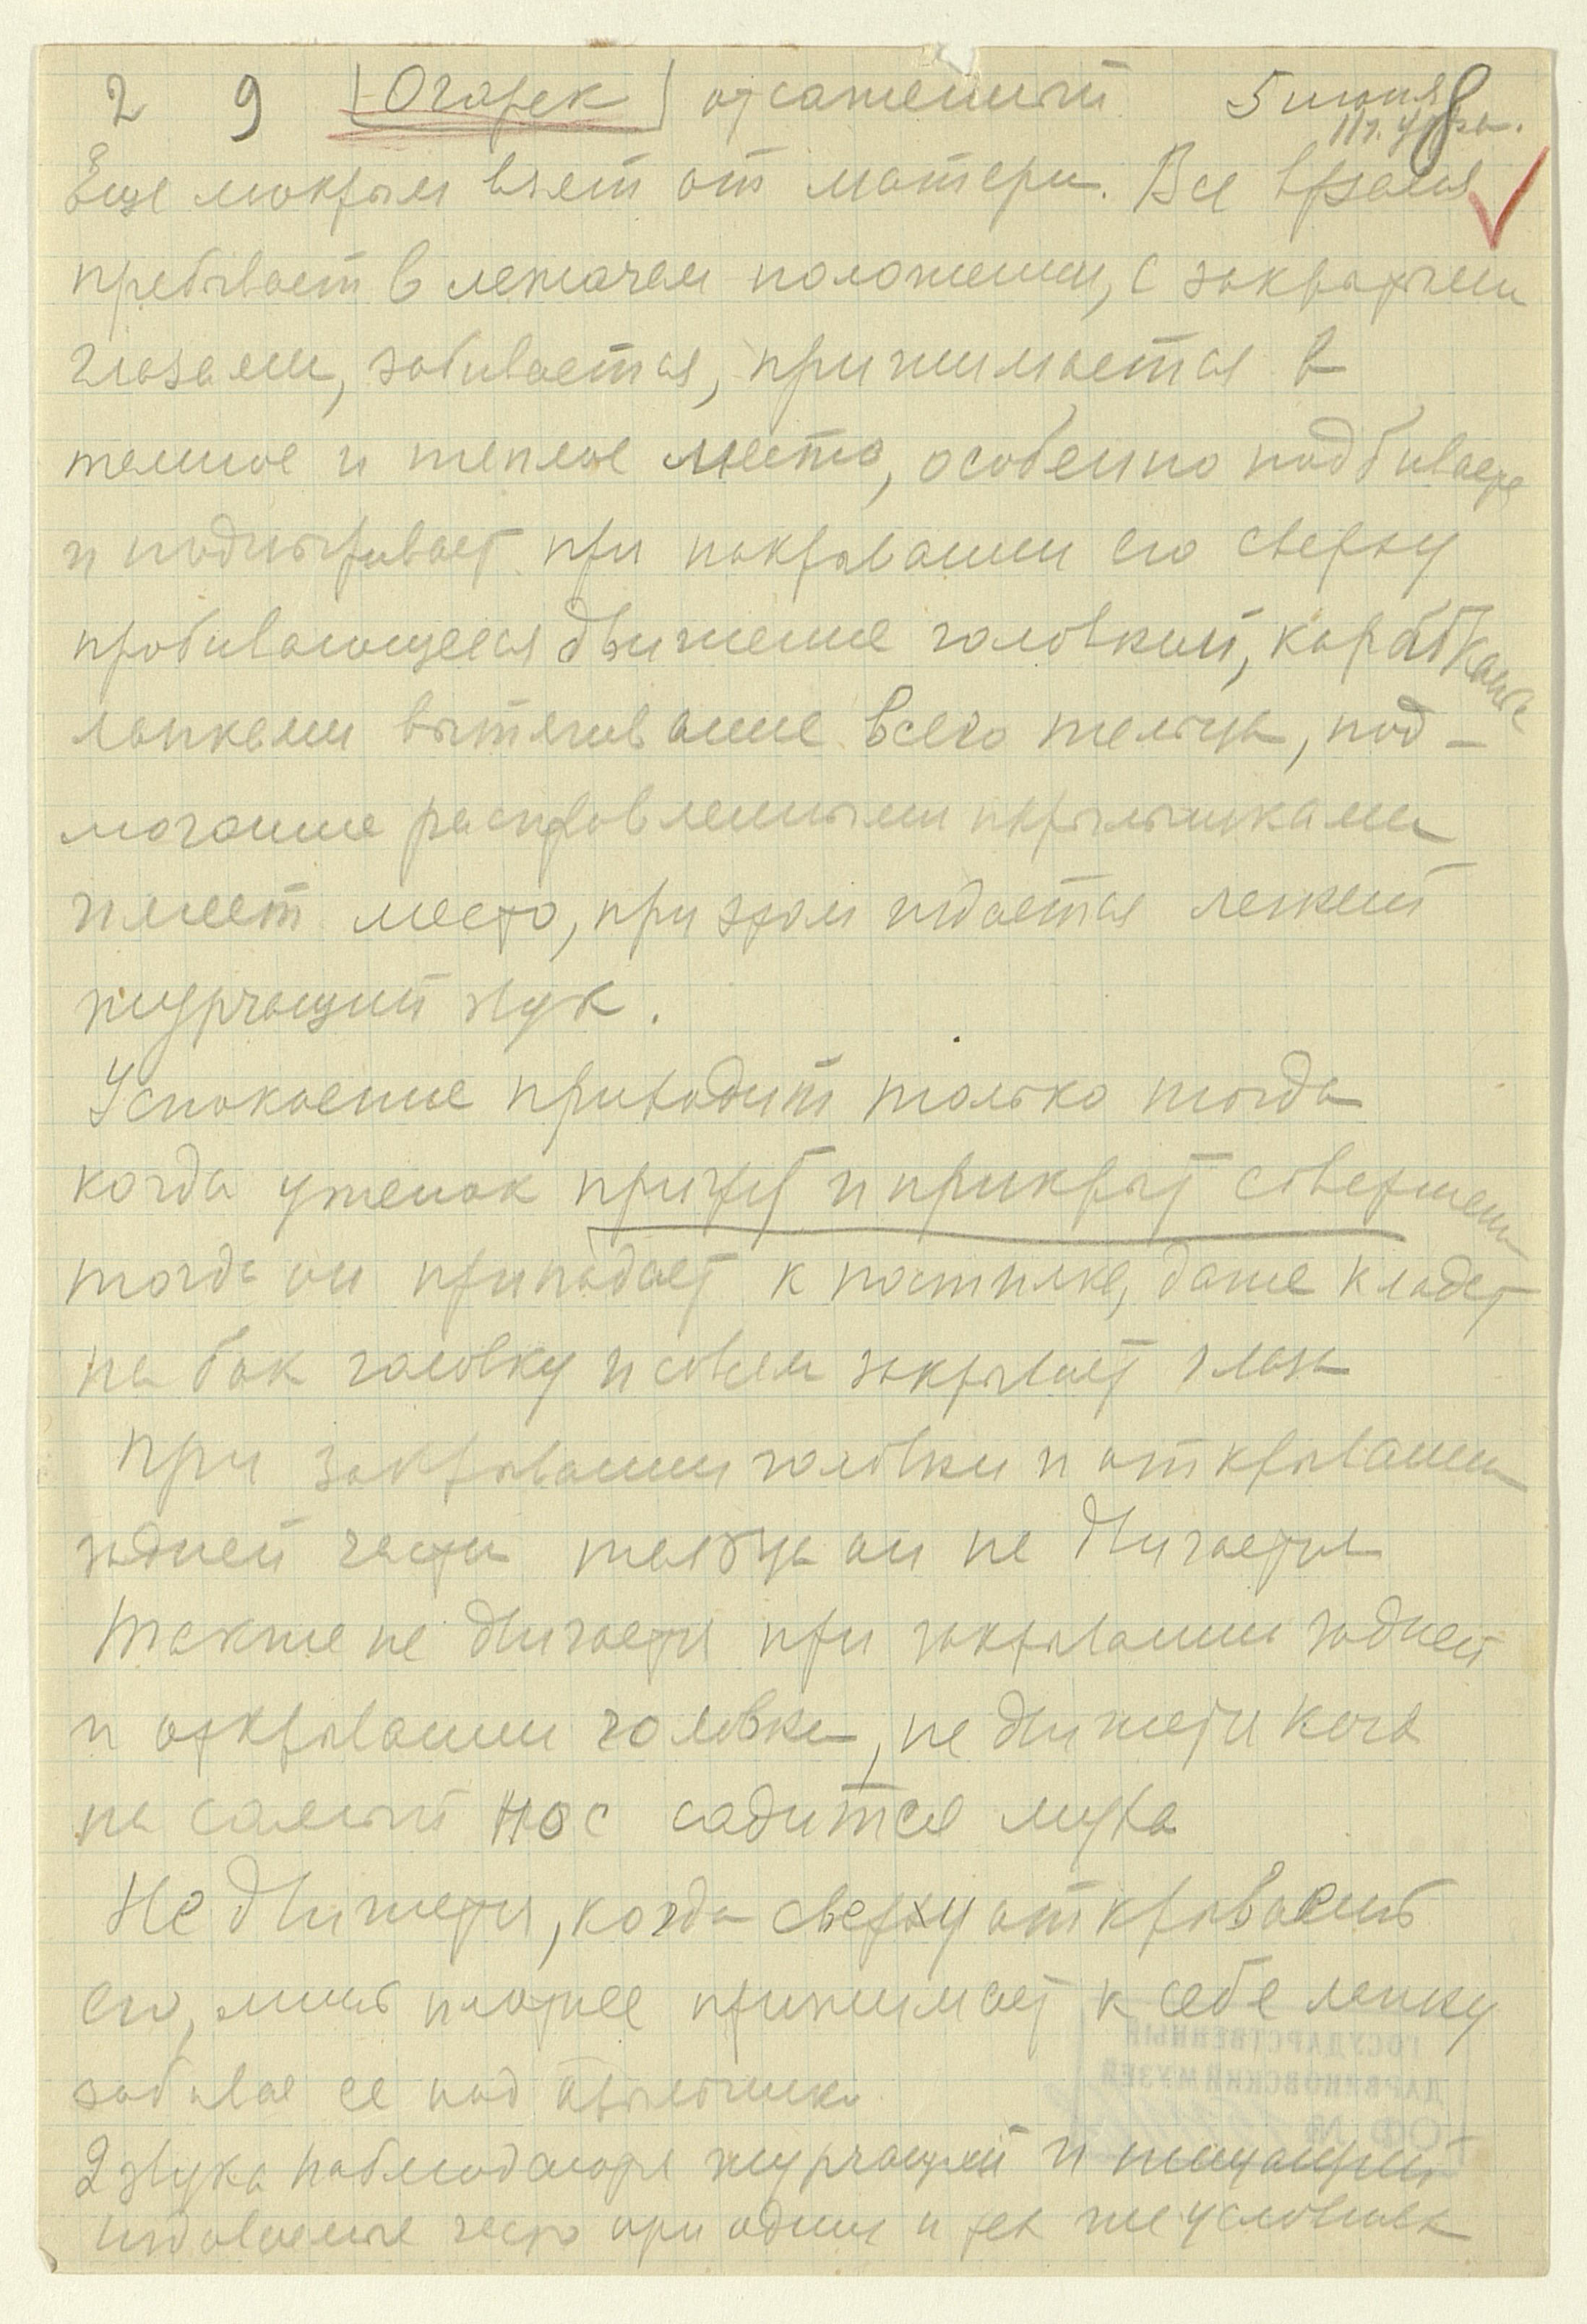 2 9 Огарек отсаженный 5 июня 8
11 ч. утра.
Еще мокрым взят от матери. Все время
пребывает в лежачем положении, с закрытыми
глазами, забивается, прижимается в
темное и теплое место, особенно подбивает
и подныривает при покрывании его сверху
пробивающееся движение головкой, карабканье
лапками вытягивание всего тельца, под-
могание расправленными крылышками
имеет место, при этом издается легкий
журчащий звук.
Успокоение приходит только тогда
когда утенок пригрет и прикрыт совершенно
тогда он припадает к постилке, даже кладет
на бок головку и совсем закрывает глаза
При закрывании головки и открывании
задней части тельца он не двигается
Также не двигается при закрывании задней
и открывании головки, не движется когда
на самый нос садится муха
Не движется, когда сверху открываешь
его, лишь плотнее прижимает к себе лапку
забивая ее под крылышко
2 звука наблюдаются журчащий и пищащий
издаваемые часто при одних и тех же условиях
ГОСУДАРСТВЕННЫЙ
ДАРВИНОВСКИЙ МУЗЕЙ
ОФ №